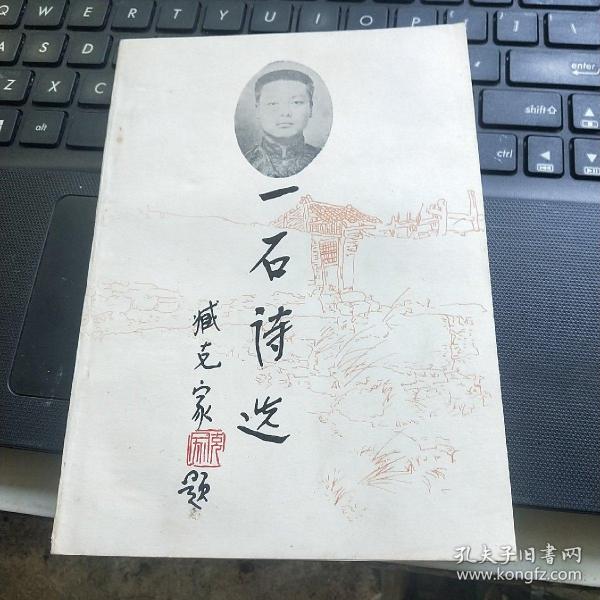 Q W E R T Y U I O P { [ } ]
A S D : ; " ' enter
Z X C ? / shift
alt alt ctrl
一石诗选
臧克家
克家
题
孔夫子旧书网
www.kongfz.com